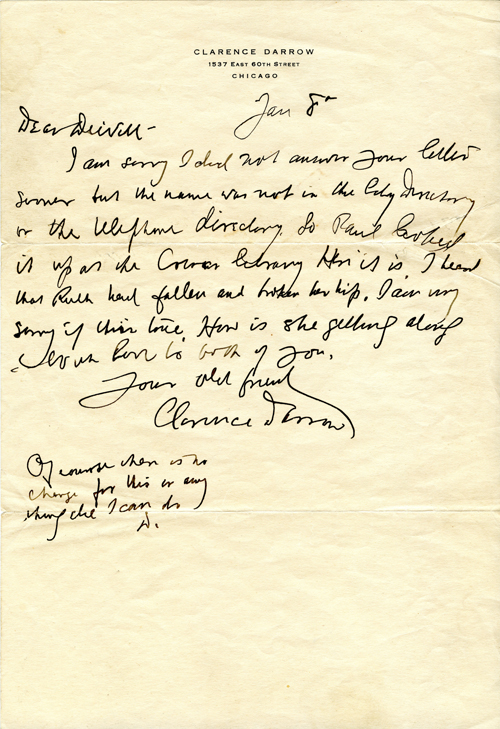 CLARENCE DARROW
1537 EAST 60TH STREET
CHICAGO
Jan 8th
Dear
I am sorry I did not answer your letter
sooner but the name was not in the City Directory
or the telephone directory. So Paul looked
it up at the Library Here it is. I heard
that Ruth had fallen and broken her hip. I am very
sorry if this is true. How is she getting along
with love to both of you.
Your old friend
Clarence Darrow
Of course there is no
charge for this or any
thing else I can do
D.